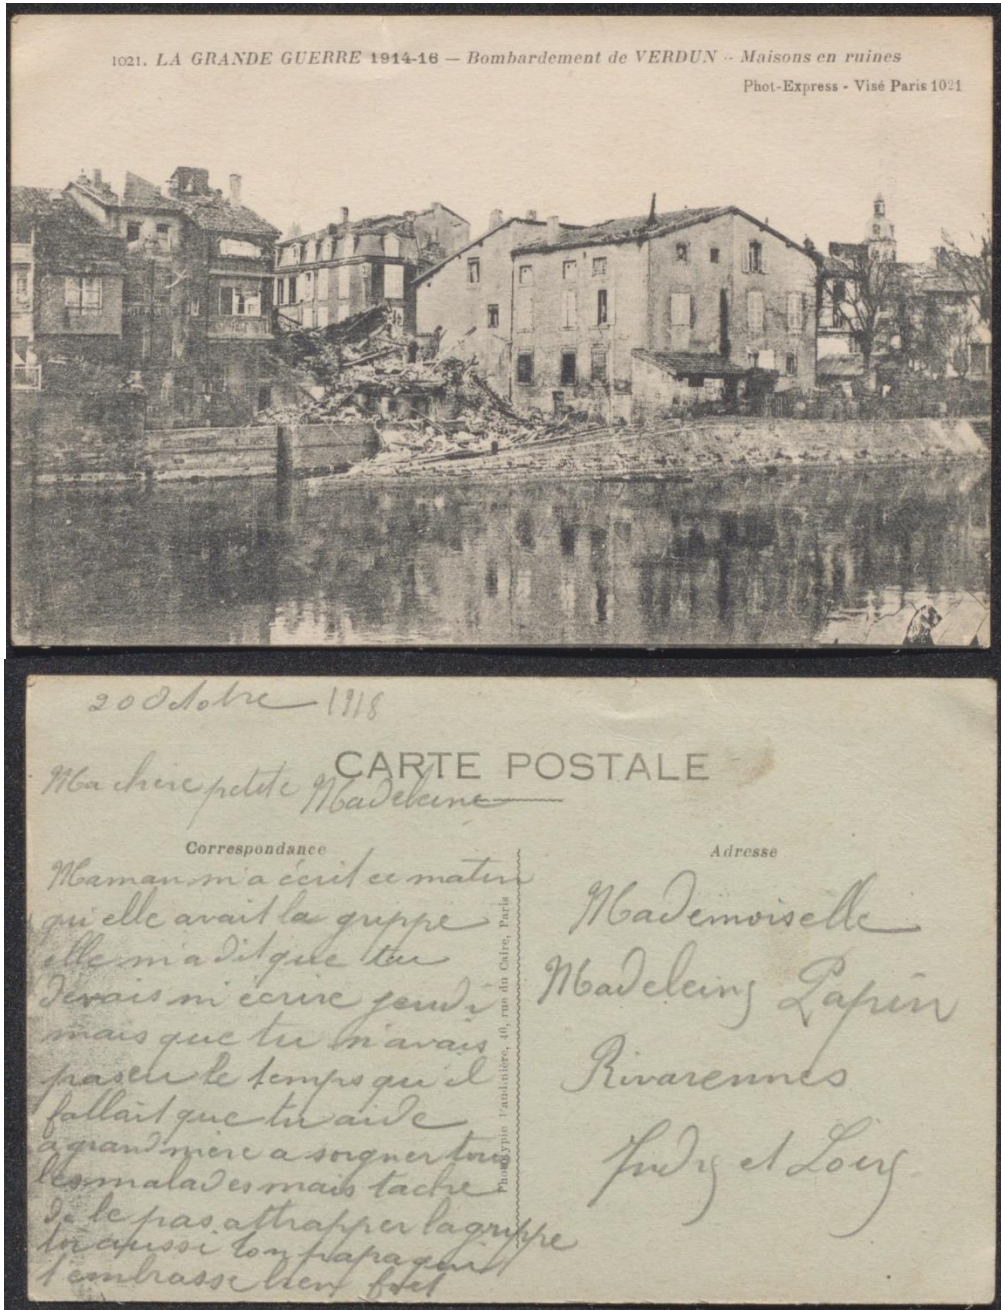 1021. LA GRANDE GUERRE 1914-16 — Bombardement de VERDUN - Maisons en ruines
Phot-Express - Visé Paris 1021
20 Octobre 1918
CARTE POSTALE
Ma chere petite Madeleine
Correspondance
Maman m'a écrit ce matin
qu'elle avait la grippe
elle m'a dit que tu
devais m'écrire jeudi
mais que tu n'avais
pas eu le temps qu'il
fallait que tu aide
a grand mere a soigner tous
les malades mais tache
de le pas attrapper la grippe
toi aussi ton papa qui
t'embrasse bien fort
Phototypie 40, rue du Caire, Paris
Adresse
Mademoiselle
Madeleine Papin
Rivarennes
Indre et Loire